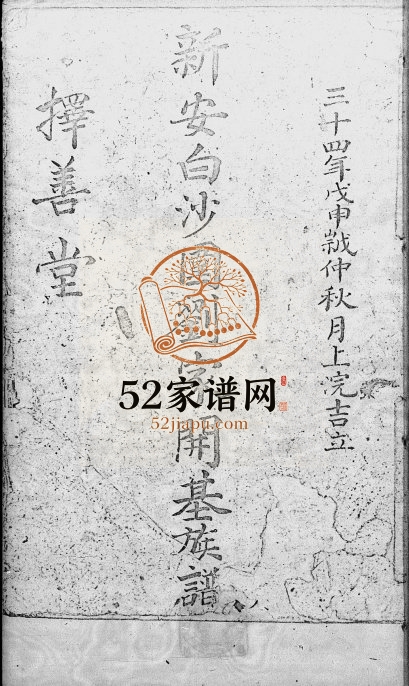 三十四年戊申歲仲秋月上完吉立
新安白沙園劉 開基族譜
擇善堂
52家谱网
52jiapu.com